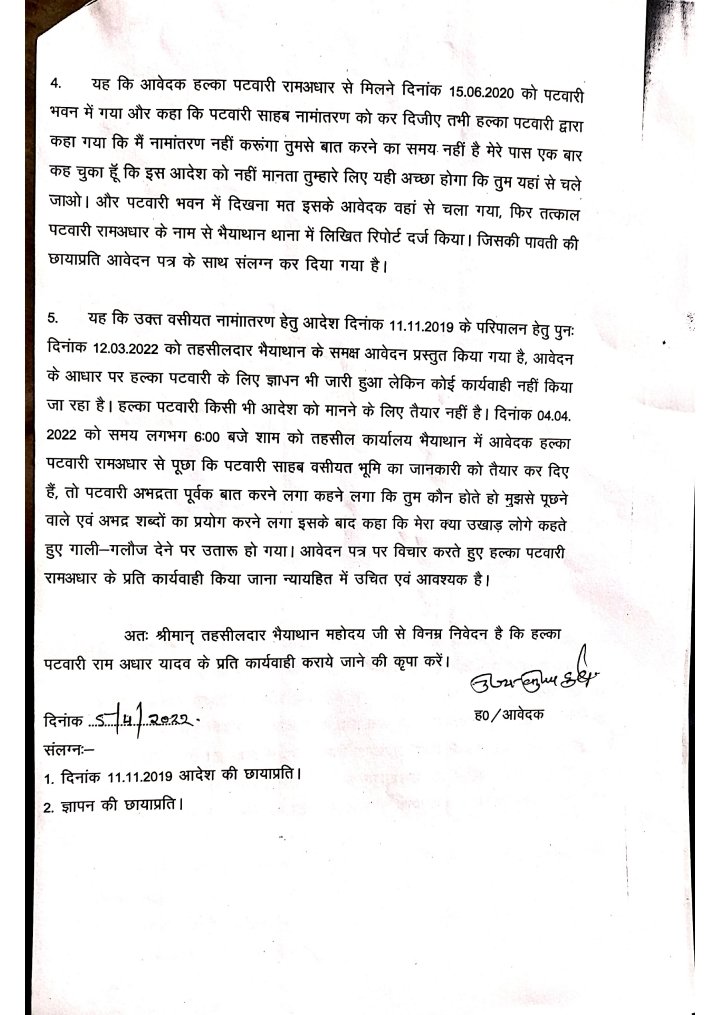 4. यह कि आवेदक हल्का पटवारी रामअधार से मिलने दिनांक 15.06.2020 को पटवारी
भवन में गया और कहा कि पटवारी साहब नामांतरण को कर दिजीए तभी हल्का पटवारी द्वारा
कहा गया कि मैं नामांतरण नहीं करूंगा तुमसे बात करने का समय नहीं है मेरे पास एक बार
कह चुका हूँ कि इस आदेश को नहीं मानता तुम्हारे लिए यही अच्छा होगा कि तुम यहां से चले
जाओ। और पटवारी भवन में दिखना मत इसके आवेदक वहां से चला गया, फिर तत्काल
पटवारी रामअधार के नाम से भैयाथान थाना में लिखित रिपोर्ट दर्ज किया। जिसकी पावती की
छायाप्रति आवेदन पत्र के साथ संलग्न कर दिया गया है।
5. यह कि उक्त वसीयत नामांातरण हेतु आदेश दिनांक 11.11.2019 के परिपालन हेतु पुनः
दिनांक 12.03.2022 को तहसीलदार भैयाथान के समक्ष आवेदन प्रस्तुत किया गया है, आवेदन
के आधार पर हल्का पटवारी के लिए ज्ञापन भी जारी हुआ लेकिन कोई कार्यवाही नहीं किया
जा रहा है। हल्का पटवारी किसी भी आदेश को मानने के लिए तैयार नहीं है। दिनांक 04.04.
2022 को समय लगभग 6:00 बजे शाम को तहसील कार्यालय भैयाथान में आवेदक हल्का
पटवारी रामअधार से पूछा कि पटवारी साहब वसीयत भूमि का जानकारी को तैयार कर दिए
हैं, तो पटवारी अभद्रता पूर्वक बात करने लगा कहने लगा कि तुम कौन होते हो मुझसे पूछने
वाले एवं अभद्र शब्दों का प्रयोग करने लगा इसके बाद कहा कि मेरा क्या उखाड़ लोगे कहते
हुए गाली–गलौज देने पर उतारू हो गया। आवेदन पत्र पर विचार करते हुए हल्का पटवारी
रामअधार के प्रति कार्यवाही किया जाना न्यायहित में उचित एवं आवश्यक है।
अतः श्रीमान् तहसीलदार भैयाथान महोदय जी से विनम्र निवेदन है कि हल्का
पटवारी राम अधार यादव के प्रति कार्यवाही कराये जाने की कृपा करें।
ह0/आवेदक
दिनांक ..5/4/2022.
संलग्नः–
1. दिनांक 11.11.2019 आदेश की छायाप्रति।
2. ज्ञापन की छायाप्रति।